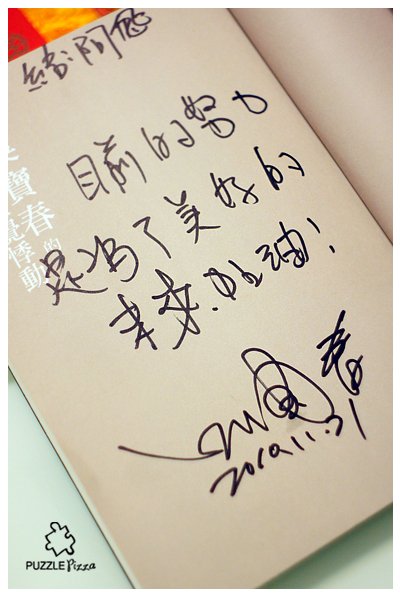 目前的努力
是為了美好的
未來.加油!
2010.11.21
寶春的
悸動
PUZZLE Pizza